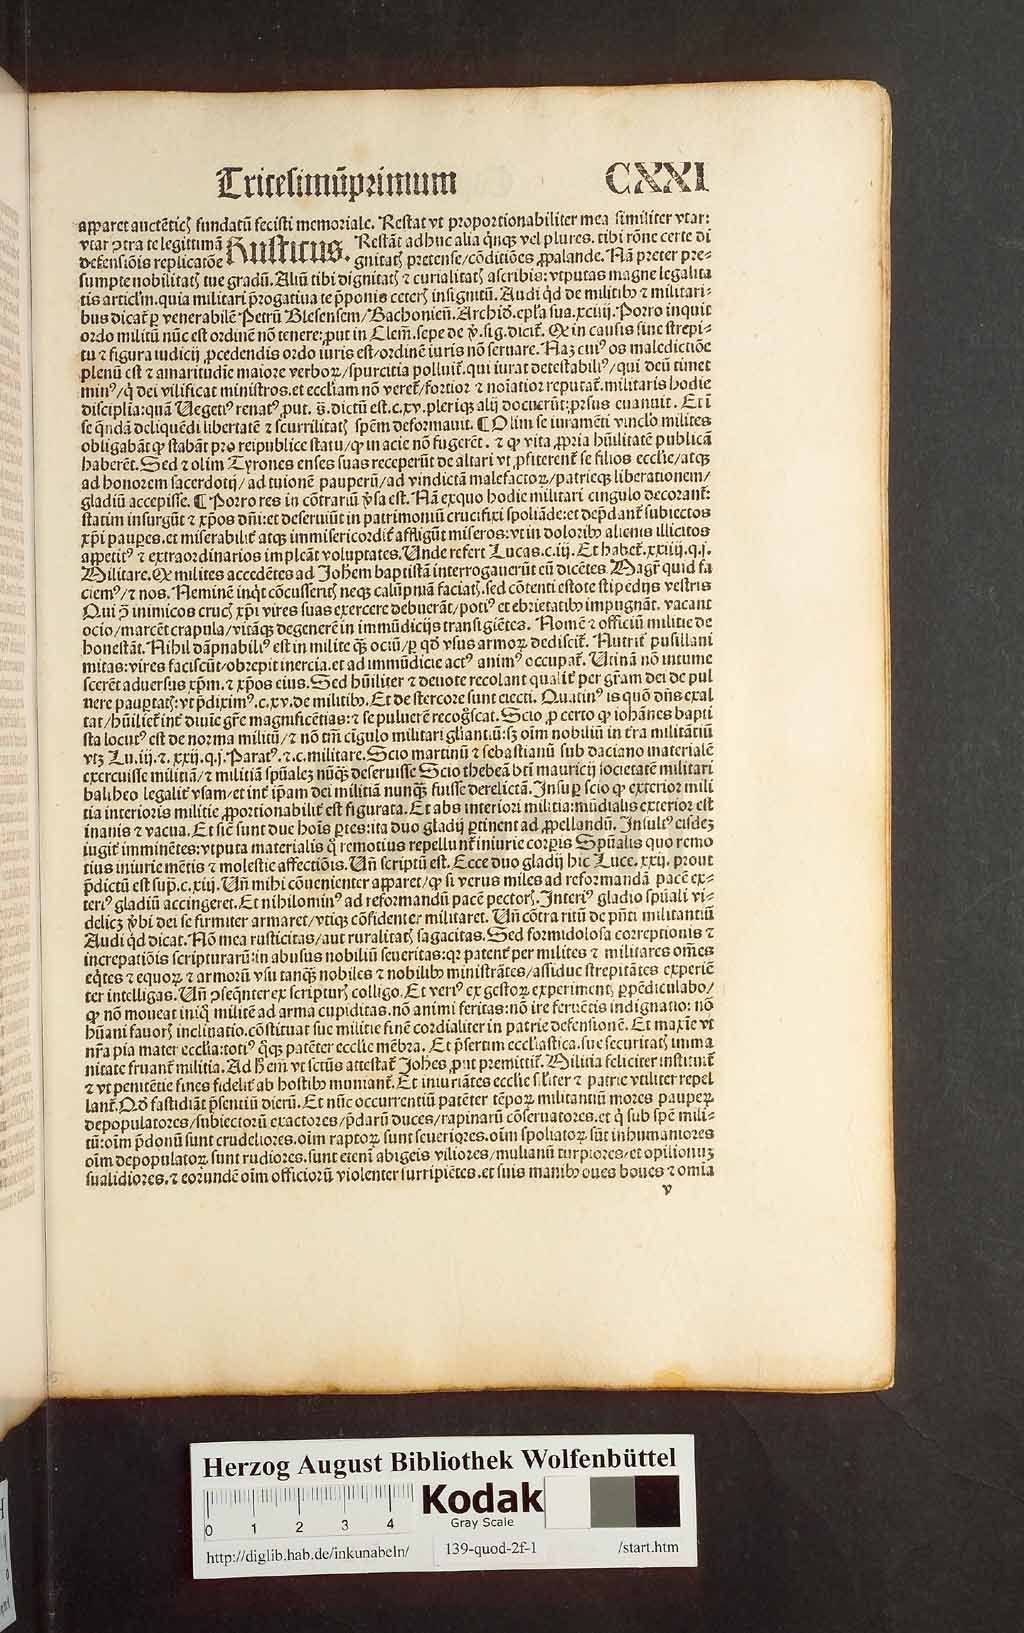 Tricesimũprimum CXXI
apparet auctẽtich fundatũ fecisti memoriale. Restat vt proportionabiliter mea similiter vtar:
vtar ꝯtra te legittimã Rusticus. Restãt adhuc alia q̃nqꝫ vel plures. tibi rõne certe di
defensiõis replicatõe gnitatꝭ pretense/cõditiões ꝓpalande. Nã preter pre⸗
sumpte nobilitatꝭ tue gradũ. Aliũ tibi dignitatꝭ ⁊ curialitatꝭ ascribis: vtputas magne legalita
tis articl'm. quia militari p̃rogatiua te p̃ponis ceterꝭ insignitũ. Audi qd̓ de militibꝰ ⁊ militari⸗
bus dicat̃ ꝑ venerabilẽ Petrũ Blesensem/Bachonieñ. Archid̓. epl'a sua. xciiij. Porro inquit
ordo militũ nũc est ordinẽ nõ tenere: ꝓut in Clem̃. sepe de v̓. sig. dicit̃. Qꝛ in causis sine strepi⸗
tu ⁊ figura iudicij ꝓcedendis ordo iuris est/ordinẽ iuris nõ seruare. Naꝫ cuiꝰ os maledictiõe
plenũ est ⁊ amaritudie maiore verboꝝ/spurcitia polluit̃. qui iurat detestabiliꝰ/qui deũ timet
minꝰ/q̓ dei vilificat ministros. et eccl'iam nõ veret̃/fortior ⁊ noiatior reputat̃. militaris hodie
disciplia: quã Uegetiꝰ renatꝰ ꝓut. s̃. dictũ est. c. xv. pleriqꝫ alij docuerũt: ꝓrsus euanuit. Et ĩ
se q̃ndã deliquẽdi libertatẽ ⁊ scurrilitatꝭ spẽm deformauit. ¶ Olim se iuramẽti vincl'o milites
obligabãt ꝙ stabãt pro reipublice statu/ꝙ in acie nõ fugerẽt. ⁊ ꝙ vita ꝓpria hũilitatẽ publicã
haberẽt. Sed ⁊ olim Tyrones enses suas receperũt de altari vt ꝓfiterent̃ se filios eccl'ie/atqꝫ
ad honorem sacerdotij/ad tuionẽ pauperũ/ad vindictã malefactoꝝ/patrieqꝫ liberationem/
gladiũ accepisse. ¶ Porro res in cõtrariũ v̓sa est. Nã exquo hodie militari cingulo decorant̃:
statim insurgũt ⁊ xp̃os dñi: et deseruiũt in patrimoniũ crucifixi spoliãde: et dep̃dant̃ subiectos
xp̃i paupes. et miserabilit̃ atqꝫ immisericordit̃ affligũt miseros: vt in doloribꝰ alienis illicitos
appetitꝰ ⁊ extraordinarios impleãt voluptates. Unde refert Lucas. c. iij. Et habet̃. xxiij. q. j.
Militare. Qꝛ milites accedẽtes ad Johem baptistã interrogauerũt eũ dicẽtes Magr̃ quid fa
ciemꝰ/⁊ nos. Neminẽ inq̓t cõcusserꝭ neqꝫ calũpniã faciatꝭ. sed cõtenti estote stipẽdijs vestris
Qui ꝙ̃ inimicos crucꝭ xp̃i vires suas exercere debuerãt/potiꝰ et ebrietatibꝰ impugnãt. vacant
ocio/marcẽt crapula/vitãqꝫ degenerẽ in immũdicijs transigiẽtes. Nomẽ ⁊ officiũ militie de
honestãt. Nihil dãpnabiliꝰ est in milite q̃ꝫ ociũ/ꝑ qd̓ vsus armoꝝ dediscit̃. Nutrit̃ pusillani
mitas: vires faciscũt/obrepit inercia. et ad immũdicie actꝰ animꝰ occupat̃. Utinã nõ intume
scerẽt aduersus xp̃m. ⁊ xp̃os eius. Sed hũiliter ⁊ deuote recolant qualit̃ per gr̃am dei de pul
uere paup̃tatꝭ: vt p̃diximꝰ. c. xv. de militibꝰ. Et de stercore sunt eiecti. Quatinꝰ is quõ dñs exal
tat/hũiliet̃ int̃ diuie gr̃e magnificẽtias: ⁊ se puluerẽ recogscat. Scio ꝓ certo ꝙ iohãnes bapti
sta locutꝰ est de norma militũ/⁊ nõ tm̃ cĩgulo militari gliant̃iũ: sꝫ oĩm nobiliũ in t̃ra militãtiũ
vtꝫ Lu. iij. ⁊. xxij. q. j. Paratꝰ. ⁊. c. militare. Scio martinũ ⁊ sebastianũ sub daciano materialẽ
exercuisse militiã/⁊ militiã spũaleꝫ nũq̃ꝫ deseruisse Scio thebeã bt̃i mauricij societatẽ militari
baltheo legalit̃ vsam/et int̃ ip̃am dei militiã nunq̃ꝫ fuisse derelictã. Insuꝑ scio ꝙ exterior mili
tia interioris militie ꝓportionabilit̃ est figurata. Et abs interiori militia: mũdialis exterior est
inanis ⁊ vacua. Et sic sunt due hoĩs ꝑtes: ita duo gladij ꝑtinent ad ꝓpellandũ. Insultꝰ eisdeꝫ
iugit̃ imminẽtes: vtputa materialis q̓ remotius repellunt̃ iniurie corp̃is Spũalis quo remo
tius iniurie mẽtis ⁊ molestie affectiõis. Uñ scriptũ est. Ecce duo gladij hic Luce. xxij. prout
p̃dictũ est sup̃. c. xij. Uñ mihi cõuenienter apparet/ꝙ si verus miles ad reformandã pacẽ ex⸗
teriꝰ gladiũ accingeret. Et nihilominꝰ ad reformandũ pacẽ pectorꝭ. Interiꝰ gladio spũali vi⸗
delicꝫ v̓bi dei se firmiter armaret/vtiqꝫ cõfidenter militaret. Uñ cõtra ritũ de pñti militantiũ
Audi qd̓ dicat. Nõ mea rusticitas/aut ruralitatꝭ sagacitas. Sed formidolosa correptionis ⁊
increpatiõis scripturarũ: in abusus nobiliũ seueritas: qꝛ patent̃ per milites ⁊ militares om̃es
eq̃tes ⁊ equoꝝ ⁊ armorũ vsu tanq̃ꝫ nobiles ⁊ nobilibꝰ ministrãtes/assidue strepitãtes experiẽ
ter intelligas. Uñ ꝯseq̃nter ex scripturꝭ colligo. Et veriꝰ ex gestoꝝ experimentꝭ ꝑpẽdiculabo/
ꝙ nõ moueat iniq̓ militẽ ad arma cupiditas. nõ animi feritas: nõ ire feruẽtis indignatio: nõ
hũani fauorꝭ inclinatio. cõstituat sue militie finẽ cordialiter in patrie defensionẽ. Et maxie vt
nr̃a pia mater eccl'ia: totiꝰ q̓qꝫ patẽter eccl'ie mẽbra. Et p̃sertim eccl'iastica. sue securitatꝭ imma
nitate fruant̃ militia. Ad h̓em vt sctũs attestat̃ Johes ꝓut premittit̃. Militia feliciter instituit̃
⁊ vt penitẽtie fines fidelit̃ ab hostibꝰ muniant̃. Et iniuriãtes eccl'ie sil'iter ⁊ patrie vtiliter repel
lant̃. Qd̓ fastidiãt p̃sentiũ dierũ. Et nũc occurrentiũ patẽter tẽpoꝝ militantiũ mores paupeꝝ
depopulatores/subiectorũ exactores/p̃darũ duces/rapinarũ cõseruatores. et q̓ sub spẽ mili⸗
tũ: oĩm p̃donũ sunt crudeliores. oĩm raptoꝝ sunt seueriores. oĩm spoliatoꝝ sũt inhumaniores
oĩm depopulatoꝝ sunt rudiores. sunt etenĩ abigeis viliores/mulianũ turpiores/et opilionuꝫ
squalidiores. ⁊ eorundẽ oĩm officiorũ violenter surripiẽtes. et suis manibꝰ oues boues ⁊ omĩa
v
Herzog August Bibliothek Wolfenbüttel
0 1 2 3 4
Kodak
Gray Scale
http://diglib.hab.de/inkunabeln/ 139-quod-2f-1 /start.htm